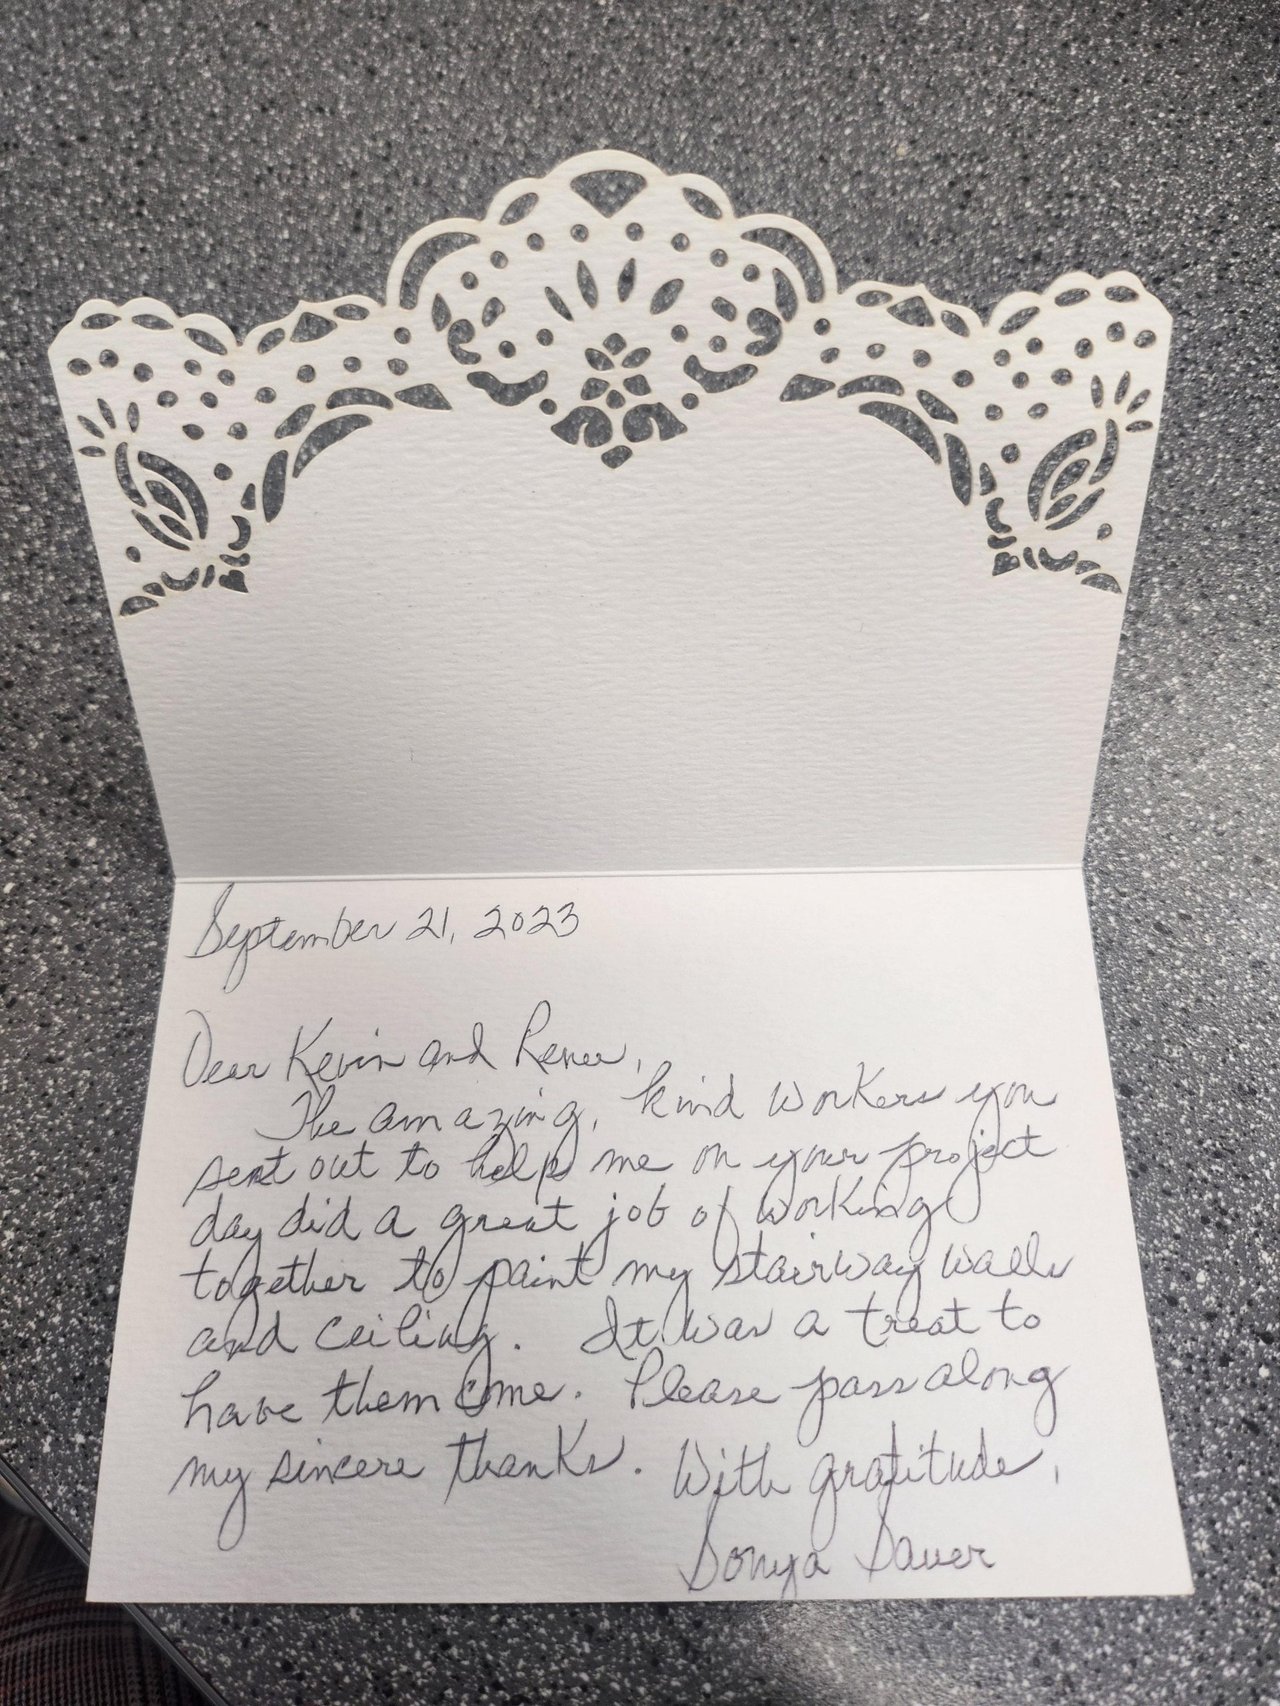 September 21, 2023
Dear Kevin and Renee,
The amazing, kind workers you
sent out to help me on your project
day did a great job of working
together to paint my stairway walls
and ceiling. It was a treat to
have them come. Please pass along
my sincere thanks. With gratitude,
Sonya Sauer